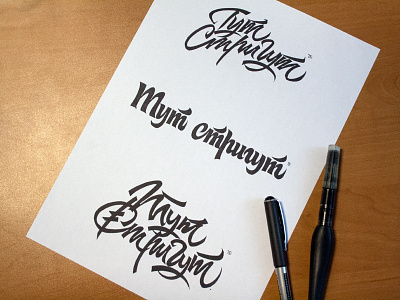 Тут
Стригут
Тут стригут
Тут
Стригут